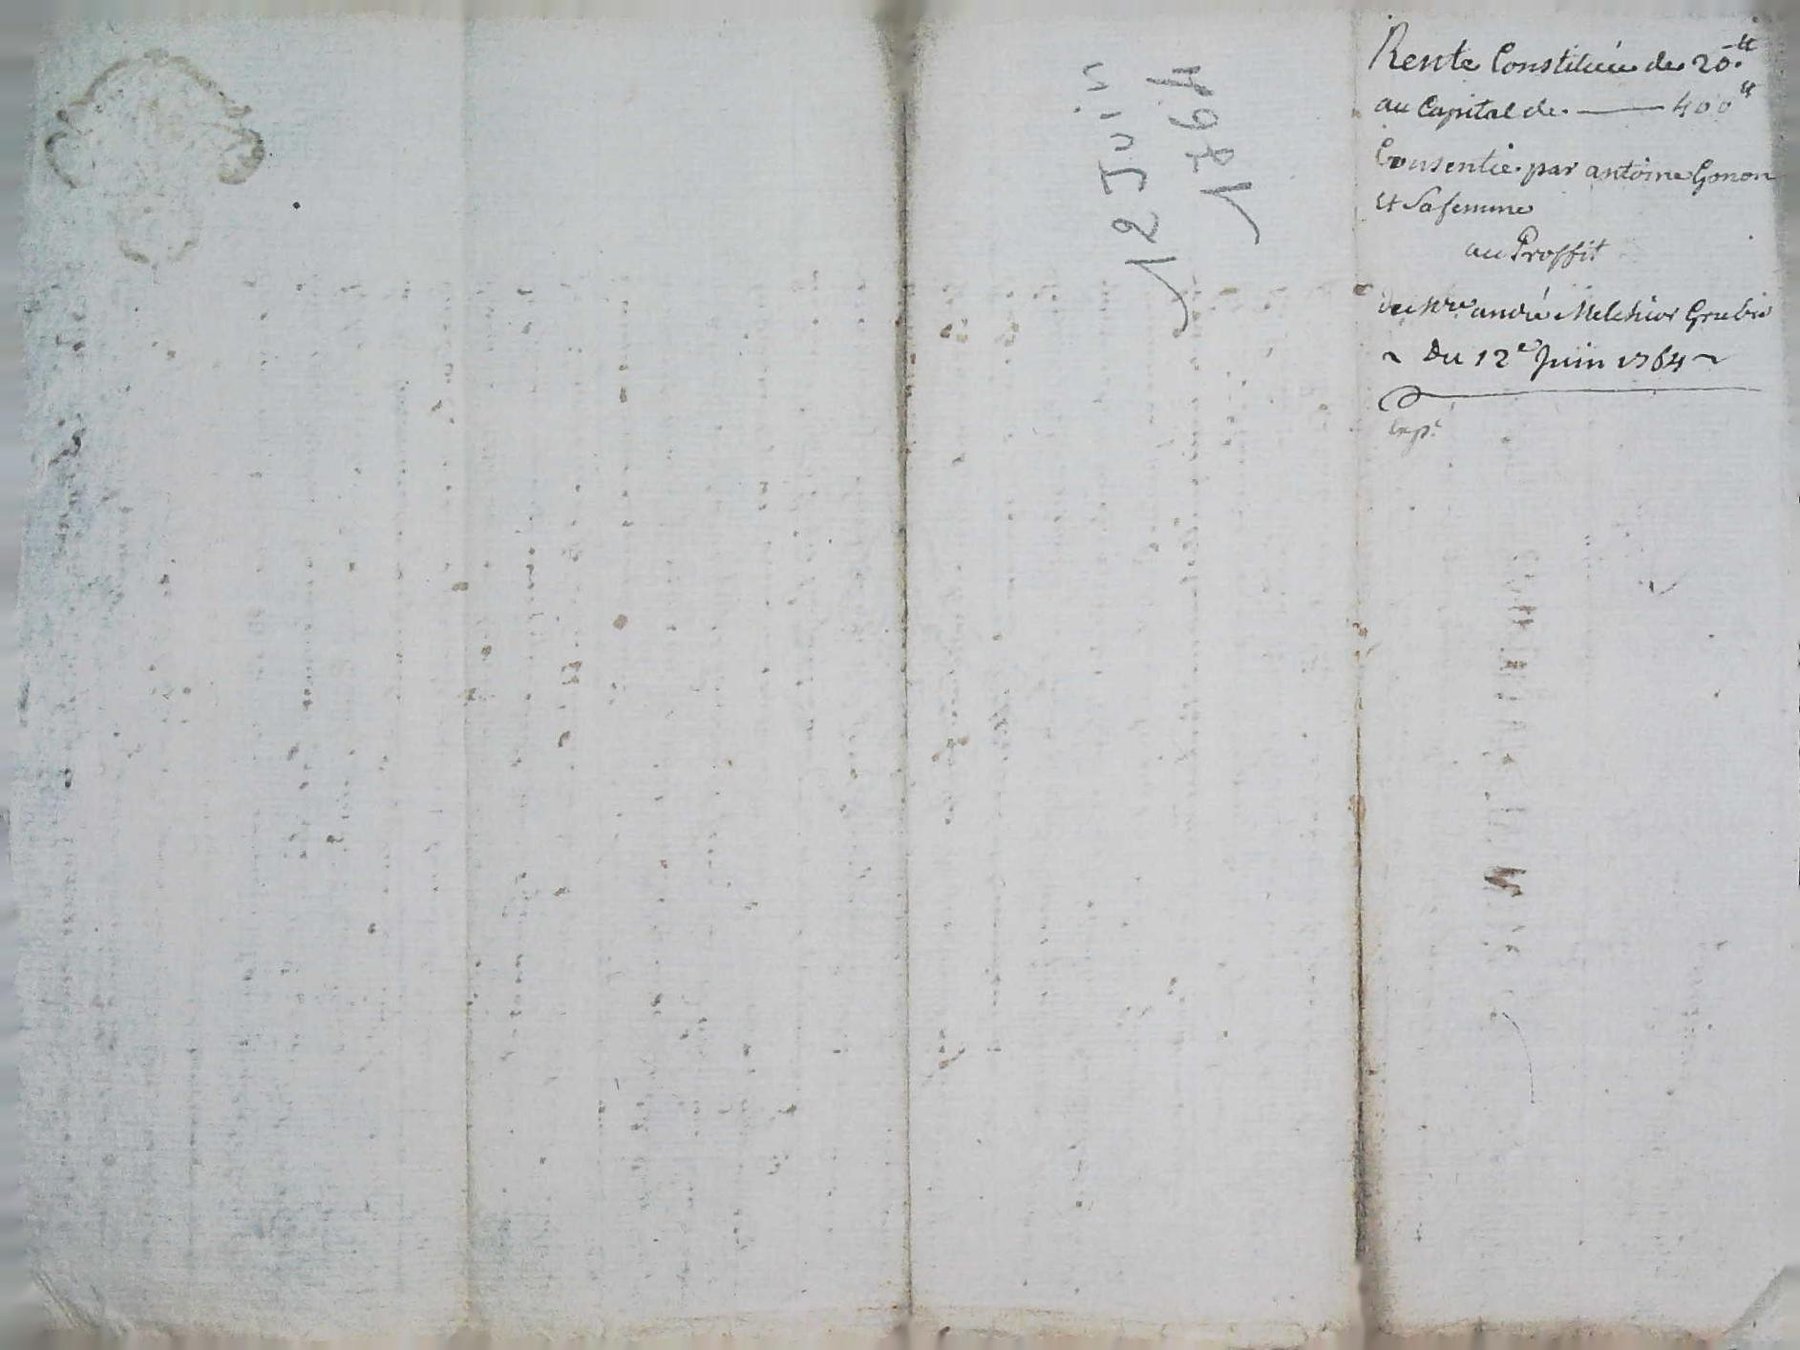 Rente Constituée de 20.tt
au Capital de. —— 400tt
Consentie par antoine Gonon
et Sa femme
au Proffit
de Mre andré Melchior Grubis
~ Du 12e Juin 1764 ~
Exp.é
12 Juin
1764